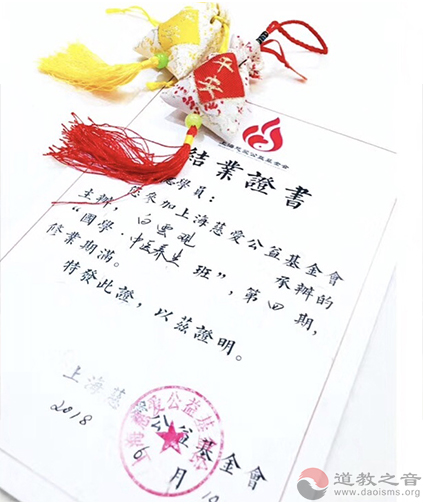 平安
上海慈愛公益基金會
結業證書
學員：
您參加上海慈愛公益基金會
主辦，白雲觀 承辦的
“國學·中医养生班”，第四期，
修業期滿。
特發此證，以茲證明。
上海慈愛公益基金會
2018 6月10
道教之音
www.daoisms.org